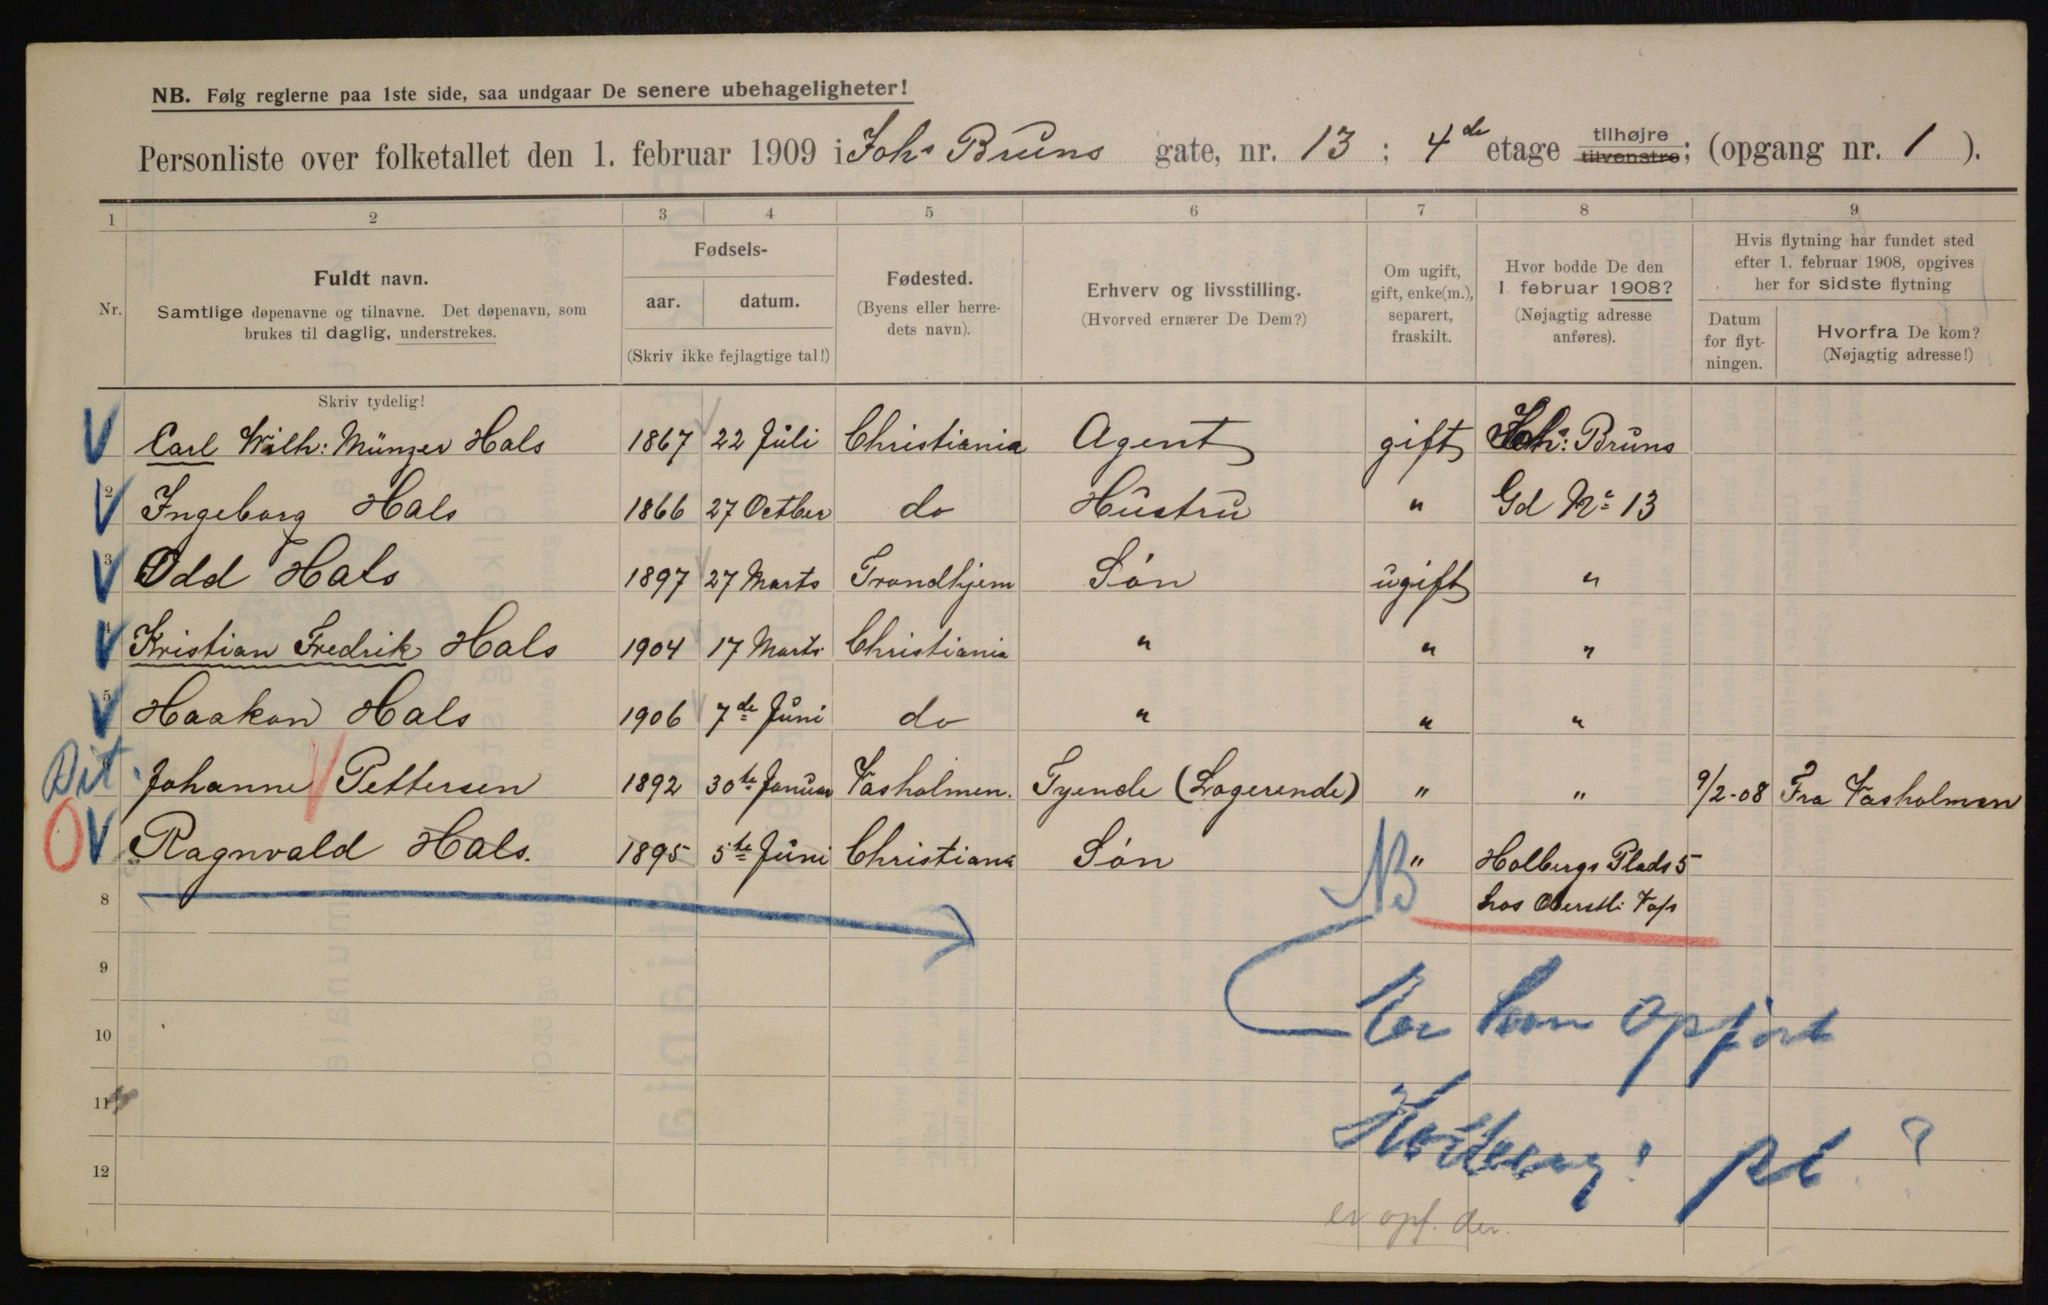 NB. Følg reglerne paa 1ste side, saa undgaar De senere ubehageligheter!
Personliste over folketallet den 1. februar 1909 i Johs Bruns gate, nr. 13 ; 4de etage tilhøjre tilvenstre; (opgang nr. 1 ).
1 2 3 4 5 6 7 8 9
Nr.
Fuldt navn.
Samtlige døpenavne og tilnavne. Det døpenavn, som
brukes til daglig, understrekes.
Fødsels-
aar. datum.
(Skriv ikke fejlagtige tal!)
Fødested.
(Byens eller herre-
dets navn).
Erhverv og livsstilling.
(Hvorved ernærer De Dem?)
Om ugift,
gift, enke(m.),
separert,
fraskilt.
Hvor bodde De den
1 februar 1908?
(Nøjagtig adresse
anføres).
Hvis flytning har fundet sted
efter 1. februar 1908, opgives
her for sidste flytning
Datum
for flyt-
ningen.
Hvorfra De kom?
(Nøjagtig adresse!)
Skriv tydelig!
Carl Wilh: Münzer Hals 1867 22 Juli Christiania Agent gift Joh's: Bruns
2 Ingeborg Hals 1866 27 Octber do Hustru " Gd No 13
3 Odd Hals 1897 27 Marts Trondhjem Søn ugift "
4 Kristian Fredrik Hals 1904 17 Marts Christiania " " "
5 Haakon Hals 1906 7de Juni do " " "
Dit. Johanne Pettersen 1892 30te Januar Vasholmen. Tyende (Logerende) " " 9/2-08 Fra Vasholmen
Ragnvald Hals. 1895 5te Juni Christiania Søn " Holbergs Plads 5
8 hos Oberstl: Vofs
NB
9
Er han opført
10
11
Holberg: pl. ?
12
er opf. der.